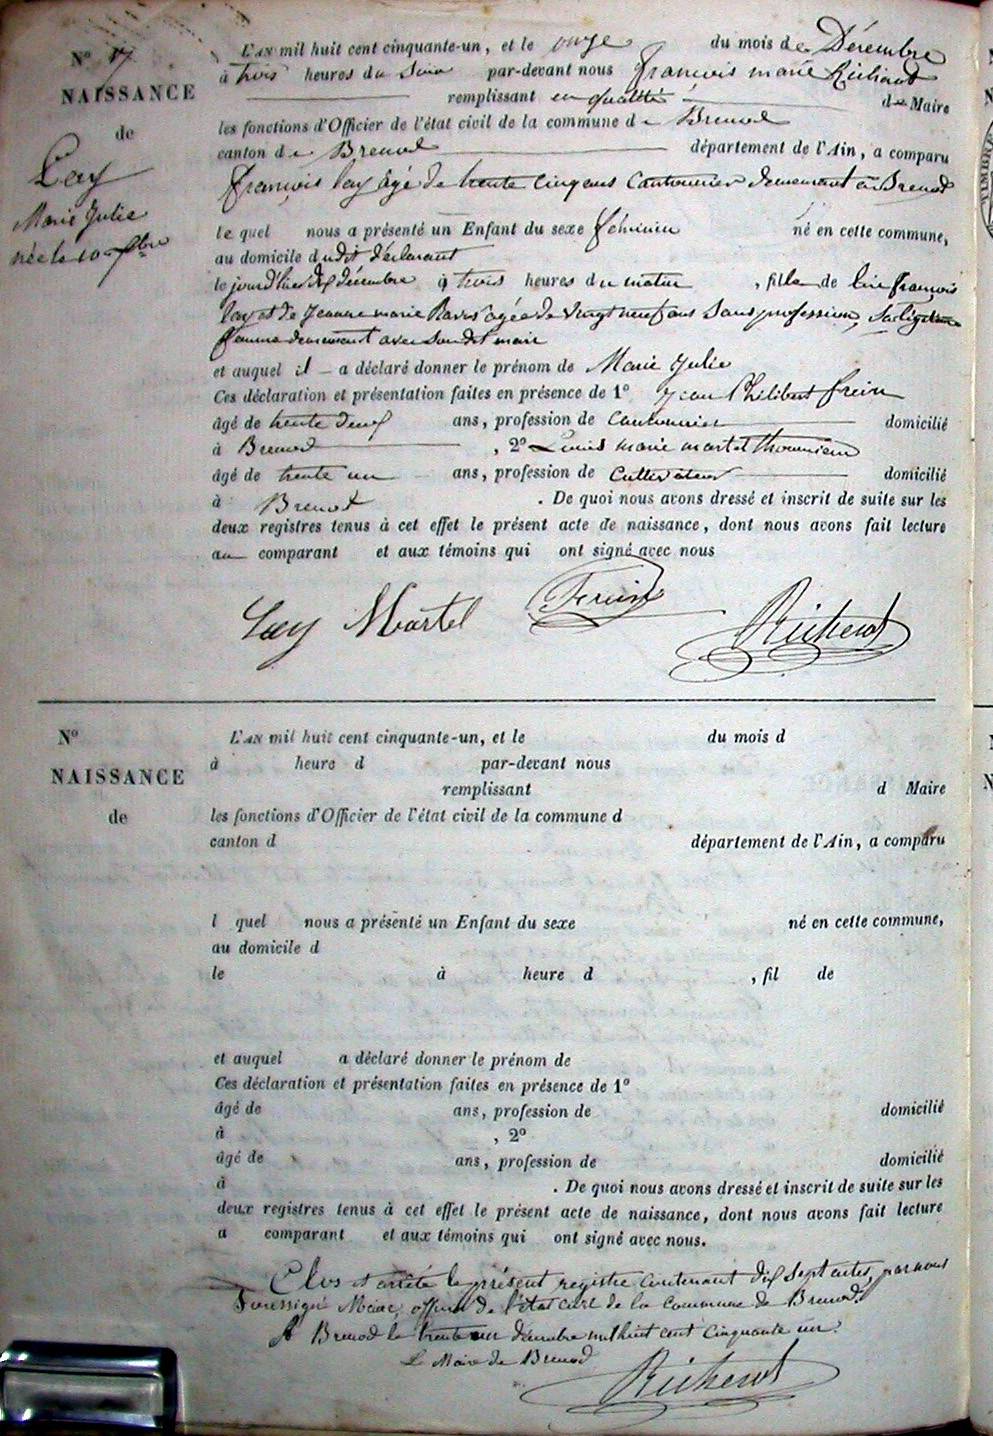 N° 17
NAISSANCE
de
Lay
Marie Julie
née le 10 Xbre
L'AN mil huit cent cinquante-un, et le onze du mois de Décembre
à trois heures du Soir par-devant nous François marie Richerot
remplissant en qualité de Maire
les fonctions d'Officier de l'état civil de la commune de Brenod
canton de Brenod département de l'Ain, a comparu
françois lay âgé de trente cinq ans Cantonnier demeurant à Brenod
le quel nous a présenté un Enfant du sexe féminin né en cette commune,
au domicile dudit déclarant
le jourd'hier dix décembre à trois heures du matin, fille de lui françois
lay et de Jeanne marie Ravis agée de vingt neuf ans Sans profession, Sa légitime
femme demeurant avec son dit mari
et auquel il a déclaré donner le prénom de Marie Julie
Ces déclaration et présentation faites en présence de 1° Jean Philibert frein
âgé de trente deux ans, profession de Cantonnier domicilié
à Brenod, 2° Louis marie martel
âgé de trente un ans, profession de Cultivateur domicilié
à Brenod. De quoi nous avons dressé et inscrit de suite sur les
deux registres tenus à cet effet le présent acte de naissance, dont nous avons fait lecture
au comparant et aux témoins qui ont signé avec nous
Lay Martel Frein Richerot
N°
NAISSANCE
de
L'AN mil huit cent cinquante-un, et le du mois d
à heure d par-devant nous
remplissant d Maire
les fonctions d'Officier de l'état civil de la commune d
canton d département de l'Ain, a comparu
l quel nous a présenté un Enfant du sexe né en cette commune,
au domicile d
le à heure d , fil de
et auquel a déclaré donner le prénom de
Ces déclaration et présentation faites en présence de 1°
âgé de ans, profession de domicilié
à , 2°
âgé de ans, profession de domicilié
à . De quoi nous avons dressé et inscrit de suite sur les
deux registres tenus à cet effet le présent acte de naissance, dont nous avons fait lecture
a comparant et aux témoins qui ont signé avec nous.
Clos et arrêté le présent registre contenant dix sept actes, par nous
Soussigné Maire, officier de l'état civil de la commune de Brenod,
A Brenod le trente un décembre mil huit cent cinquante un.
Le Maire de Brenod
Richerot